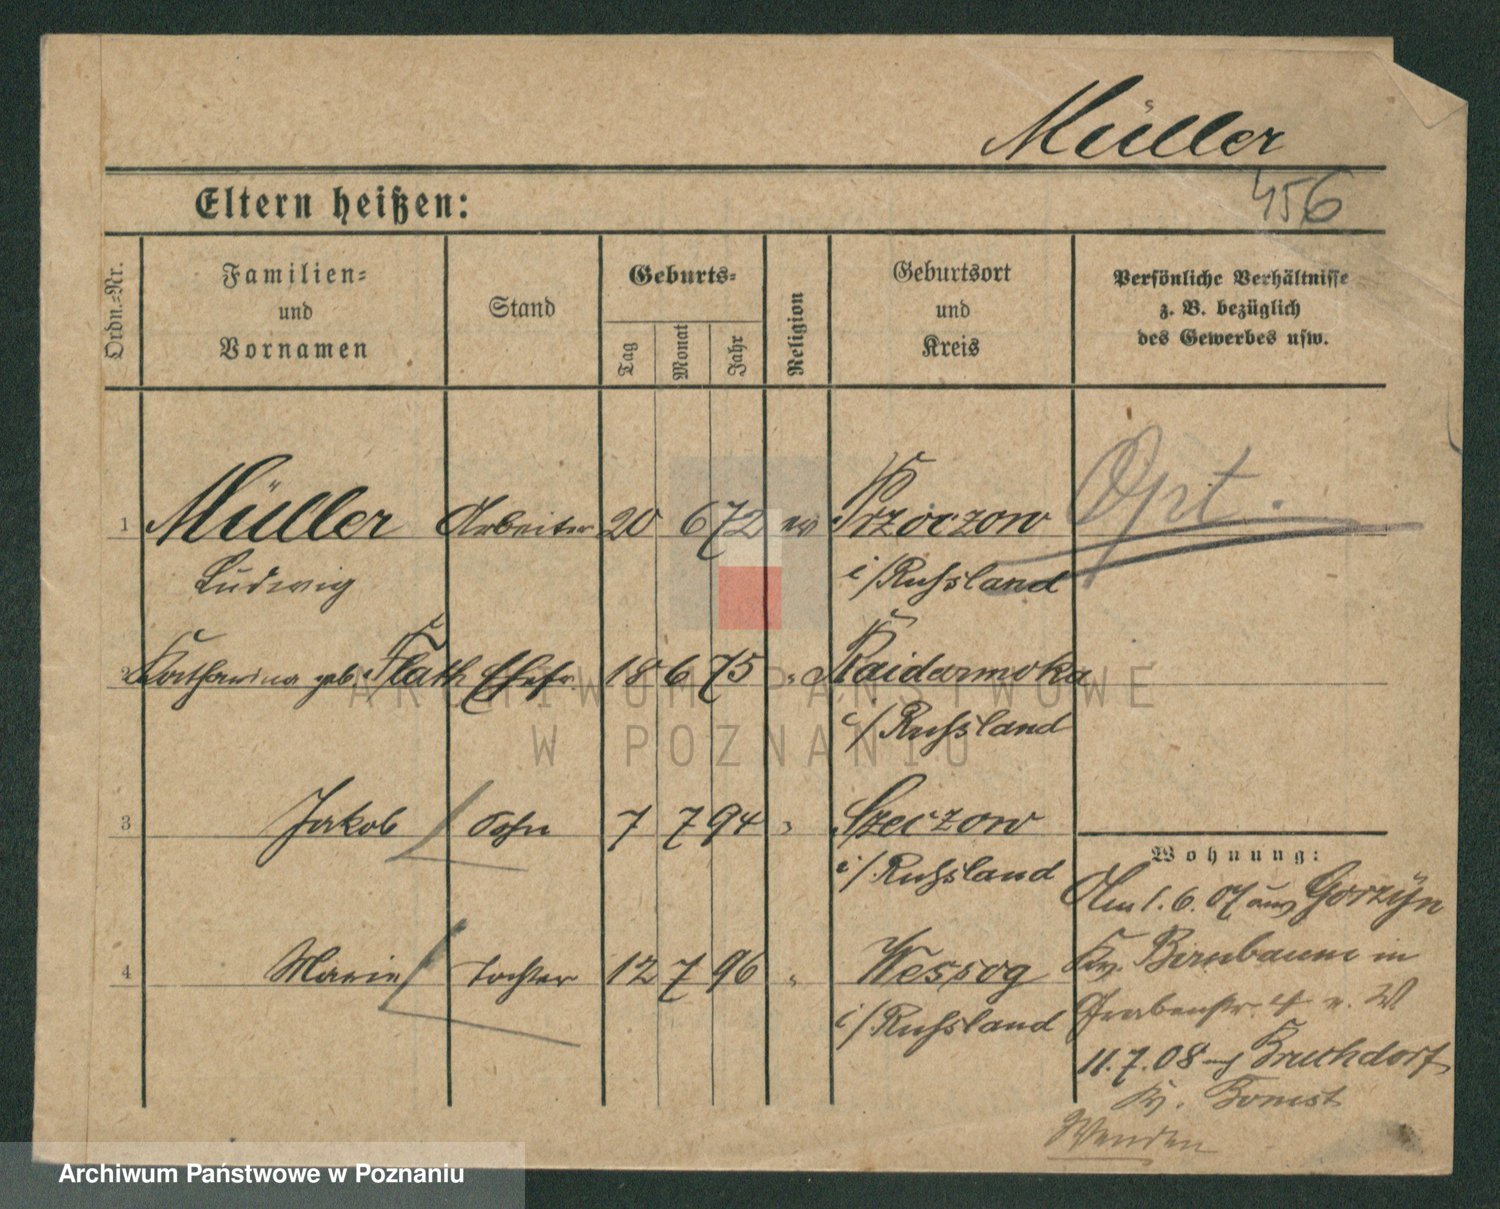 Müller
Eltern heißen:
456
Ordn.-Nr.
Familien- und Vornamen
Stand
Geburts-
Tag
Monat
Jahr
Religion
Geburtsort und Kreis
Persönliche Verhältnisse
z. B. bezüglich
des Gewerbes usw.
Opt.
1 Müller Arbeiter 20 6 72 ev
Ludwig i/Russland
2 Katharina geb. Flath Ehefr. 18 6 75 " Kaidarmoka
i/Russland
3 Jakob Sohn 7 7 94 " Szeczow
i/Russland
4 Marie Tochter 12 7 96 " Wessog
i/Russland
Wohnung:
Am 1.6.07 aus Gorzyn
Kr. Birnbaum in
Grabenstr. 4 v. W
11.7.08 Bruchdorf
Kr. Bomst
Wenden
ARCHIWUM PAŃSTWOWE
W POZNANIU
Archiwum Państwowe w Poznaniu